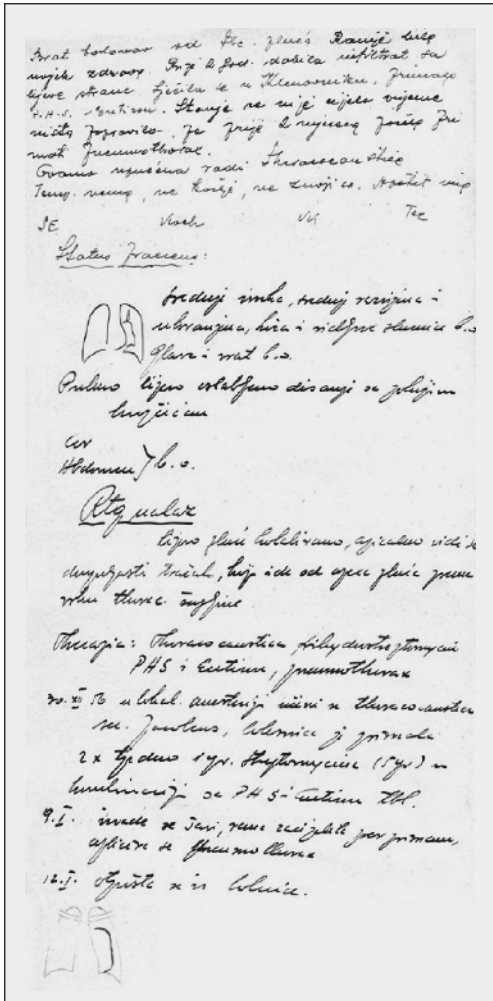 Brat bolovao od tbc. pluća Ranije bila
uvijek zdrava. Prije 2 god. dobila infiltrat sa
lijeve strane liječila se u Klenovniku, primala
P.A.S. Stanje se nije cijelo vrijeme
ništa popravilo, pa prije 2 mjeseca počela pri
mati Pneumothorax.
Ovamo upućena radi
Temp. nema, ne kašlje, ne znoji se. Apetit
SE Koch
Status praesens:
srednje visoka, srednje razvijena i
uhranjena, koža i vidljive sluznice b.o.
Glava i vrat b.o.
Pulmo lijevo oslabljeno disanje sa
Cor
Abdomen } b.o.
Rtg nalaz
lijevo pluće kolabirano, apicalno vidi se
tračak, koji ide od apexa pluća prema
vrhu
Therapia: thoracocaustica, dihydrostreptomycin
PHS i pneumothorax
30. XII 56 u lokal. anesteziji učini se thoracocaustica
sec. Jacobeus, bolesnica je primala
2 x tjedno 1 gr. Streptomycina (5 gr) u
kombinaciji sa PHS i tbl.
9.I. se šavi, rana zacijelila per primam,
aplicira se Pneumothorax
12.I. otpušta se iz bolnice.